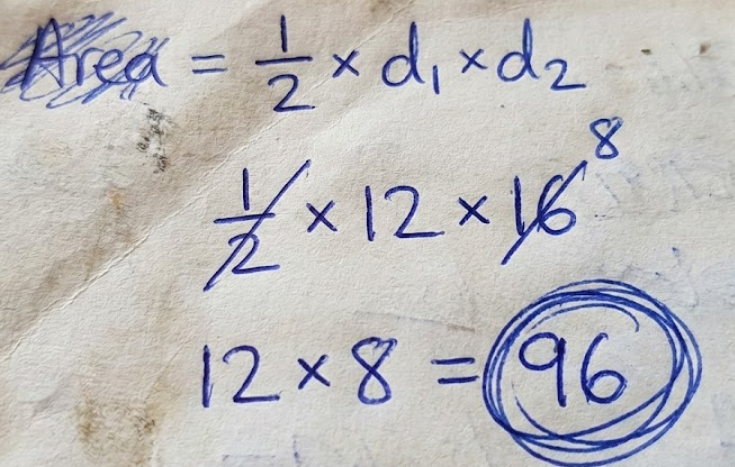 Area = 1/2 × d₁ × d₂
1/2 × 12 × 16 8
12 × 8 = 96